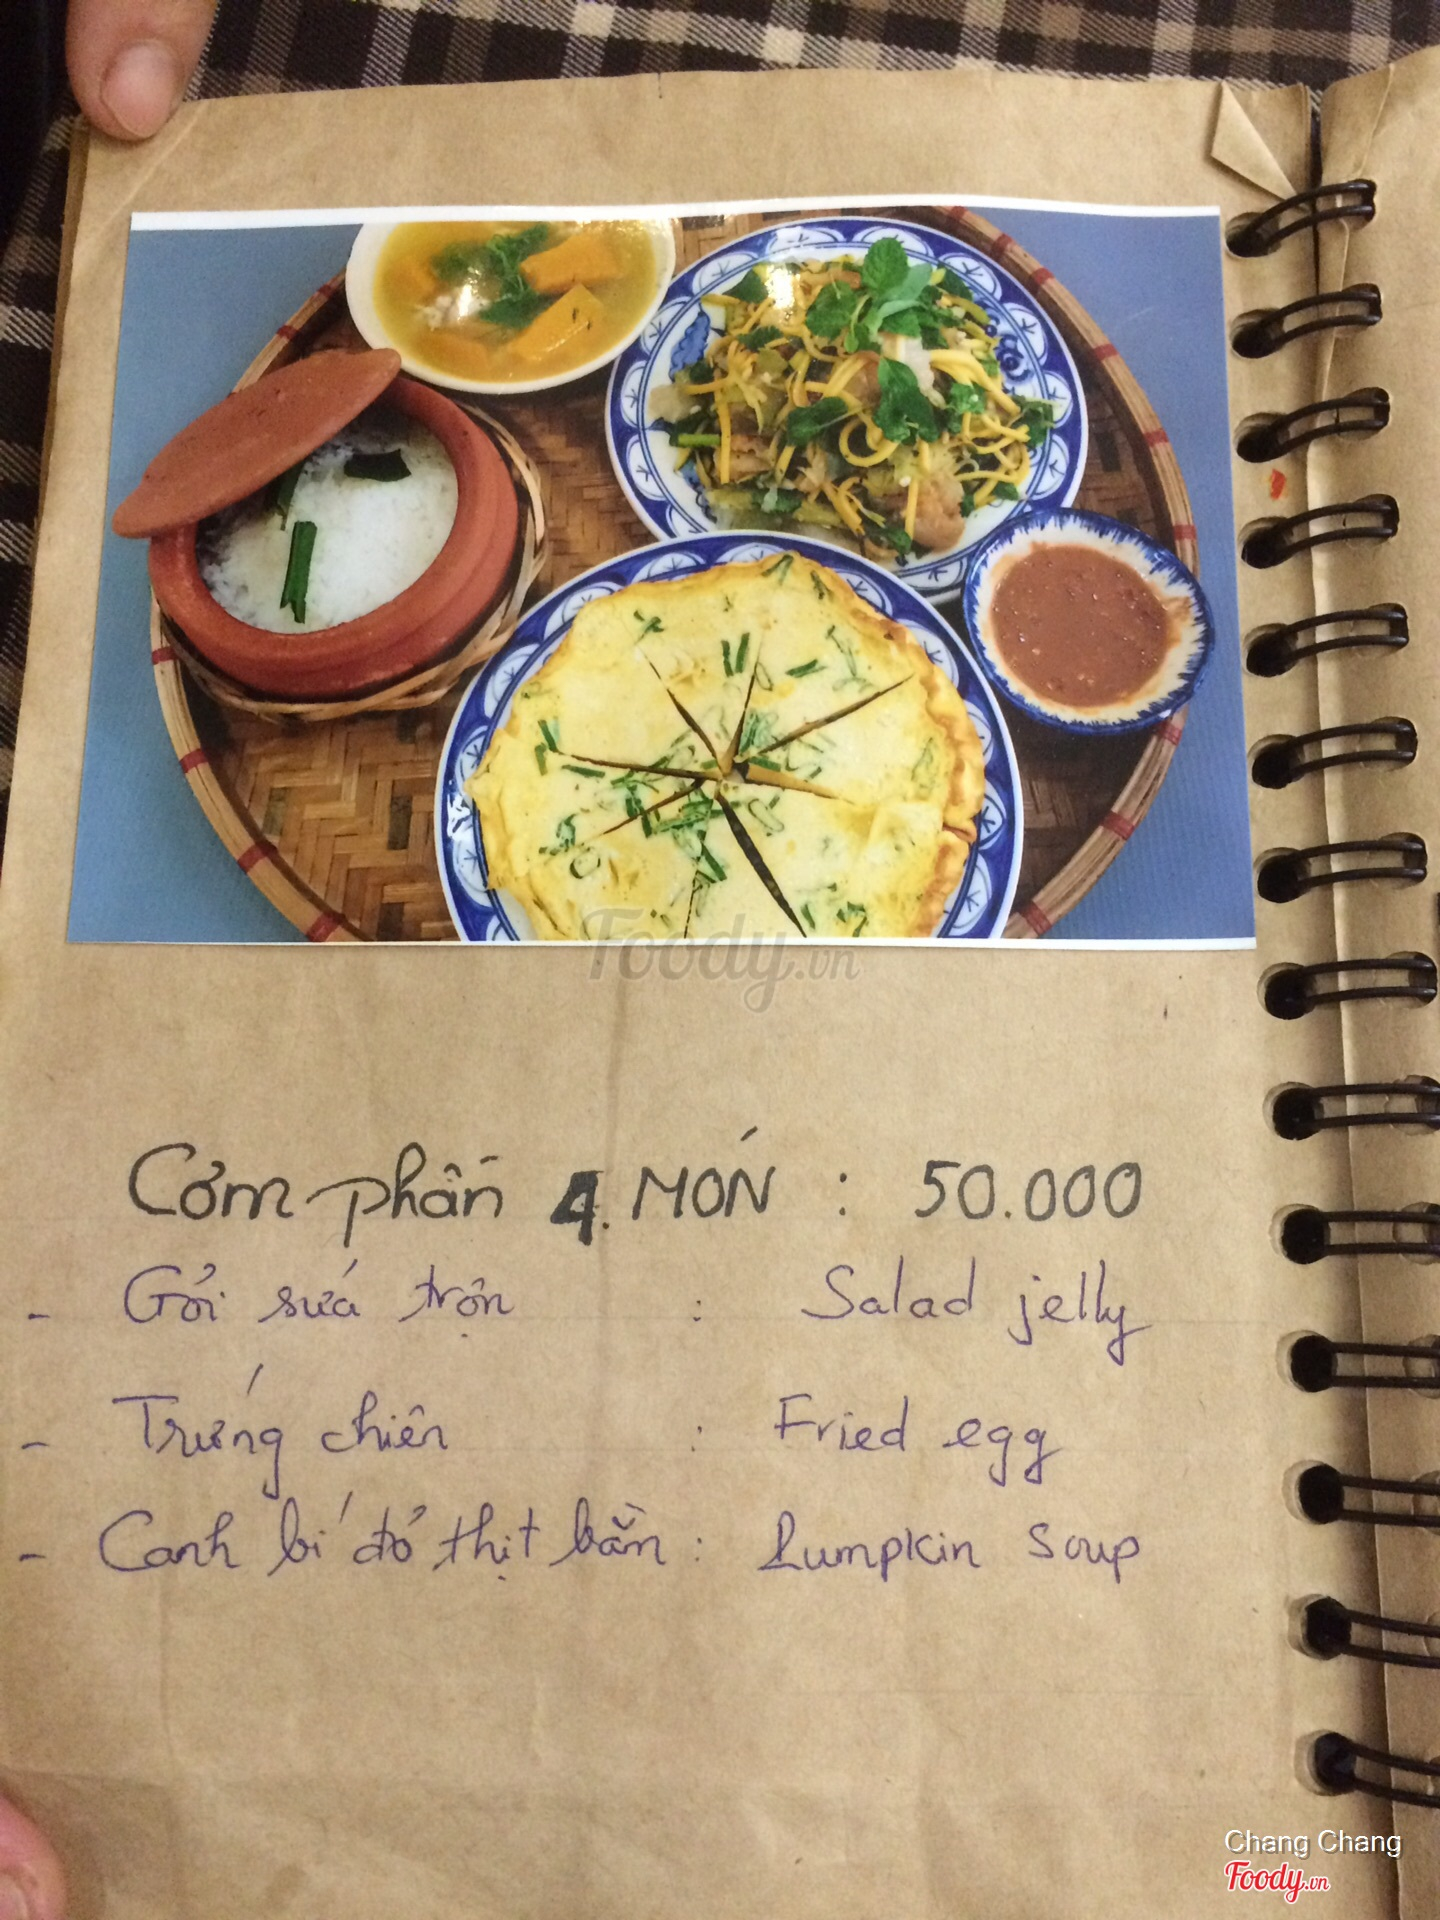 Foody.vn
Cơm phần 4 MÓN : 50.000
- Gỏi sứa trộn : Salad jelly
- Trứng chiên : Fried egg
- Canh bí đỏ thịt bằm : Pumpkin soup
Chang Chang
Foody.vn